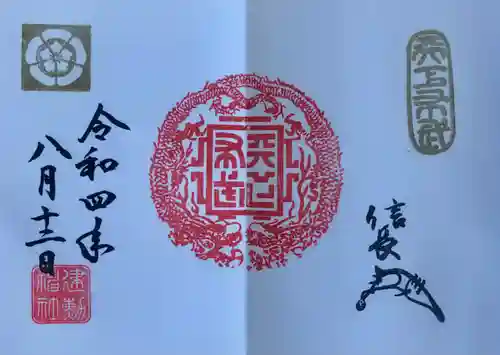 天下布武
信長
天下布武
令和四年
八月十三日
建勲
神社